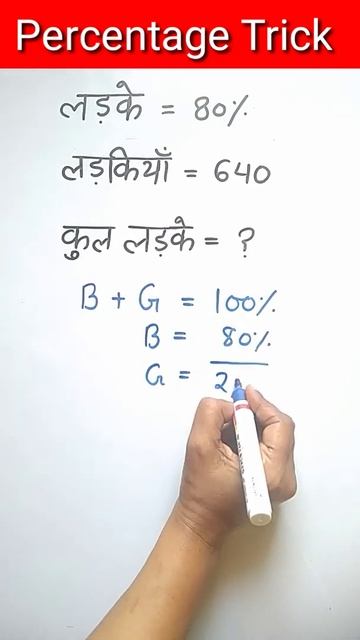 Percentage Trick
लड़के = 80%
लड़कियाँ = 640
कुल लड़के = ?
B + G = 100%
B = 80%
G = 2